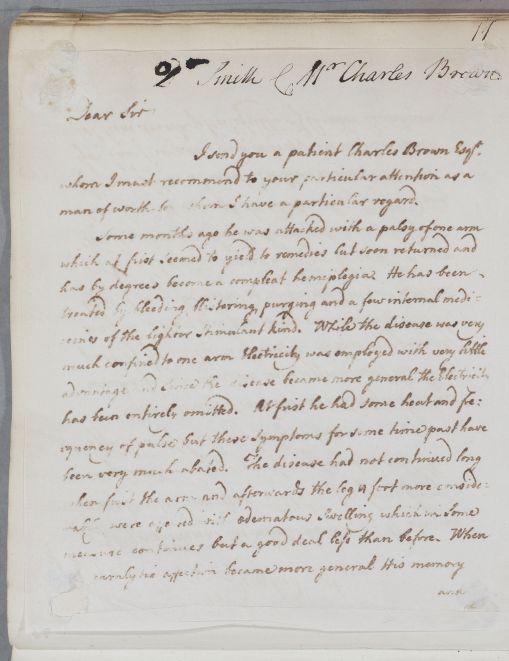 17
Dr Smith C Mr Charles Brown
Dear Sir
I send you a patient Charles Brown Esqr.
whom I must recommend to your particular attention as a
man of worth to whom I have a particular regard.
Some months ago he was attacked with a palsy of one arm
which at first seemed to yield to remedies but soon returned and
has by degrees become a compleat hemiplegia. He has been
treated by bleeding, blistering, purging and a few internal medi:
cines of the lighter stimulant kind. While the disease was very
much confined to one arm Electricity was employed with very little
advantage and since the disease became more general the Electricity
has been entirely omitted. At first he had some heat and fre:
quency of pulse but these symptoms for some time past have
been very much abated. The disease had not continued long
when first the arm and afterwards the leg & foot more conside:
were with œdematous swelling which in some
measure continues but a good deal less than before. When
paralytic affection became more general His memory
and